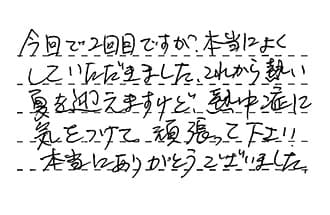 今回で2回目ですが?本当によく
していただきました。これから熱い
夏を迎えますけど、熱中症に
気をつけて。頑張って下さい!!
本当にありがとうございました。